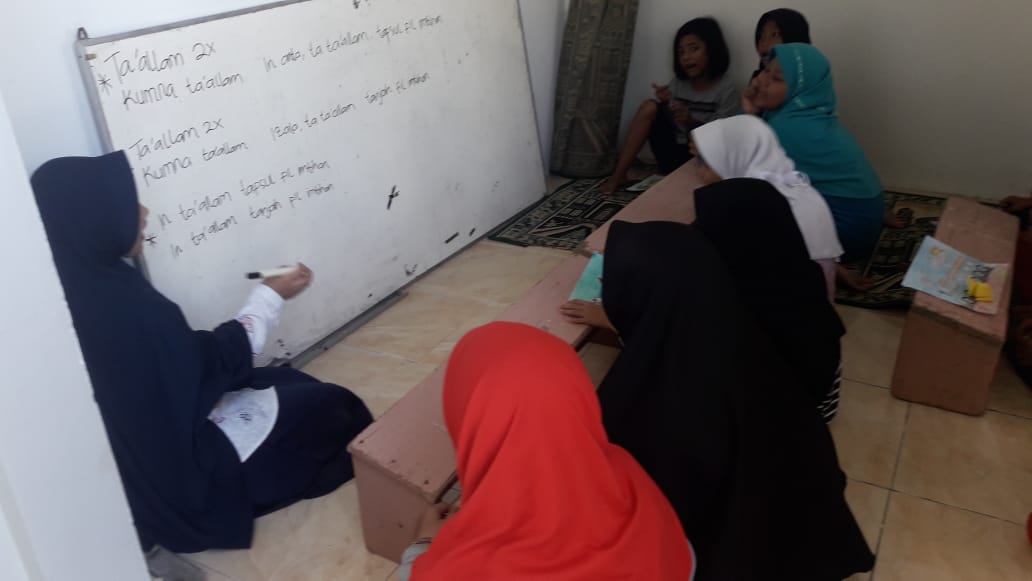 * Ta'allam 2x
Kumna ta'allam In ta ta'allam, tapsul fil mtihan
Ta'allam 2x
Kumna ta'allam ta ta'allam tanjah fil mtihan
In ta'allam tapsul fil mtihan
* In ta'allam tanjah fil mtihan